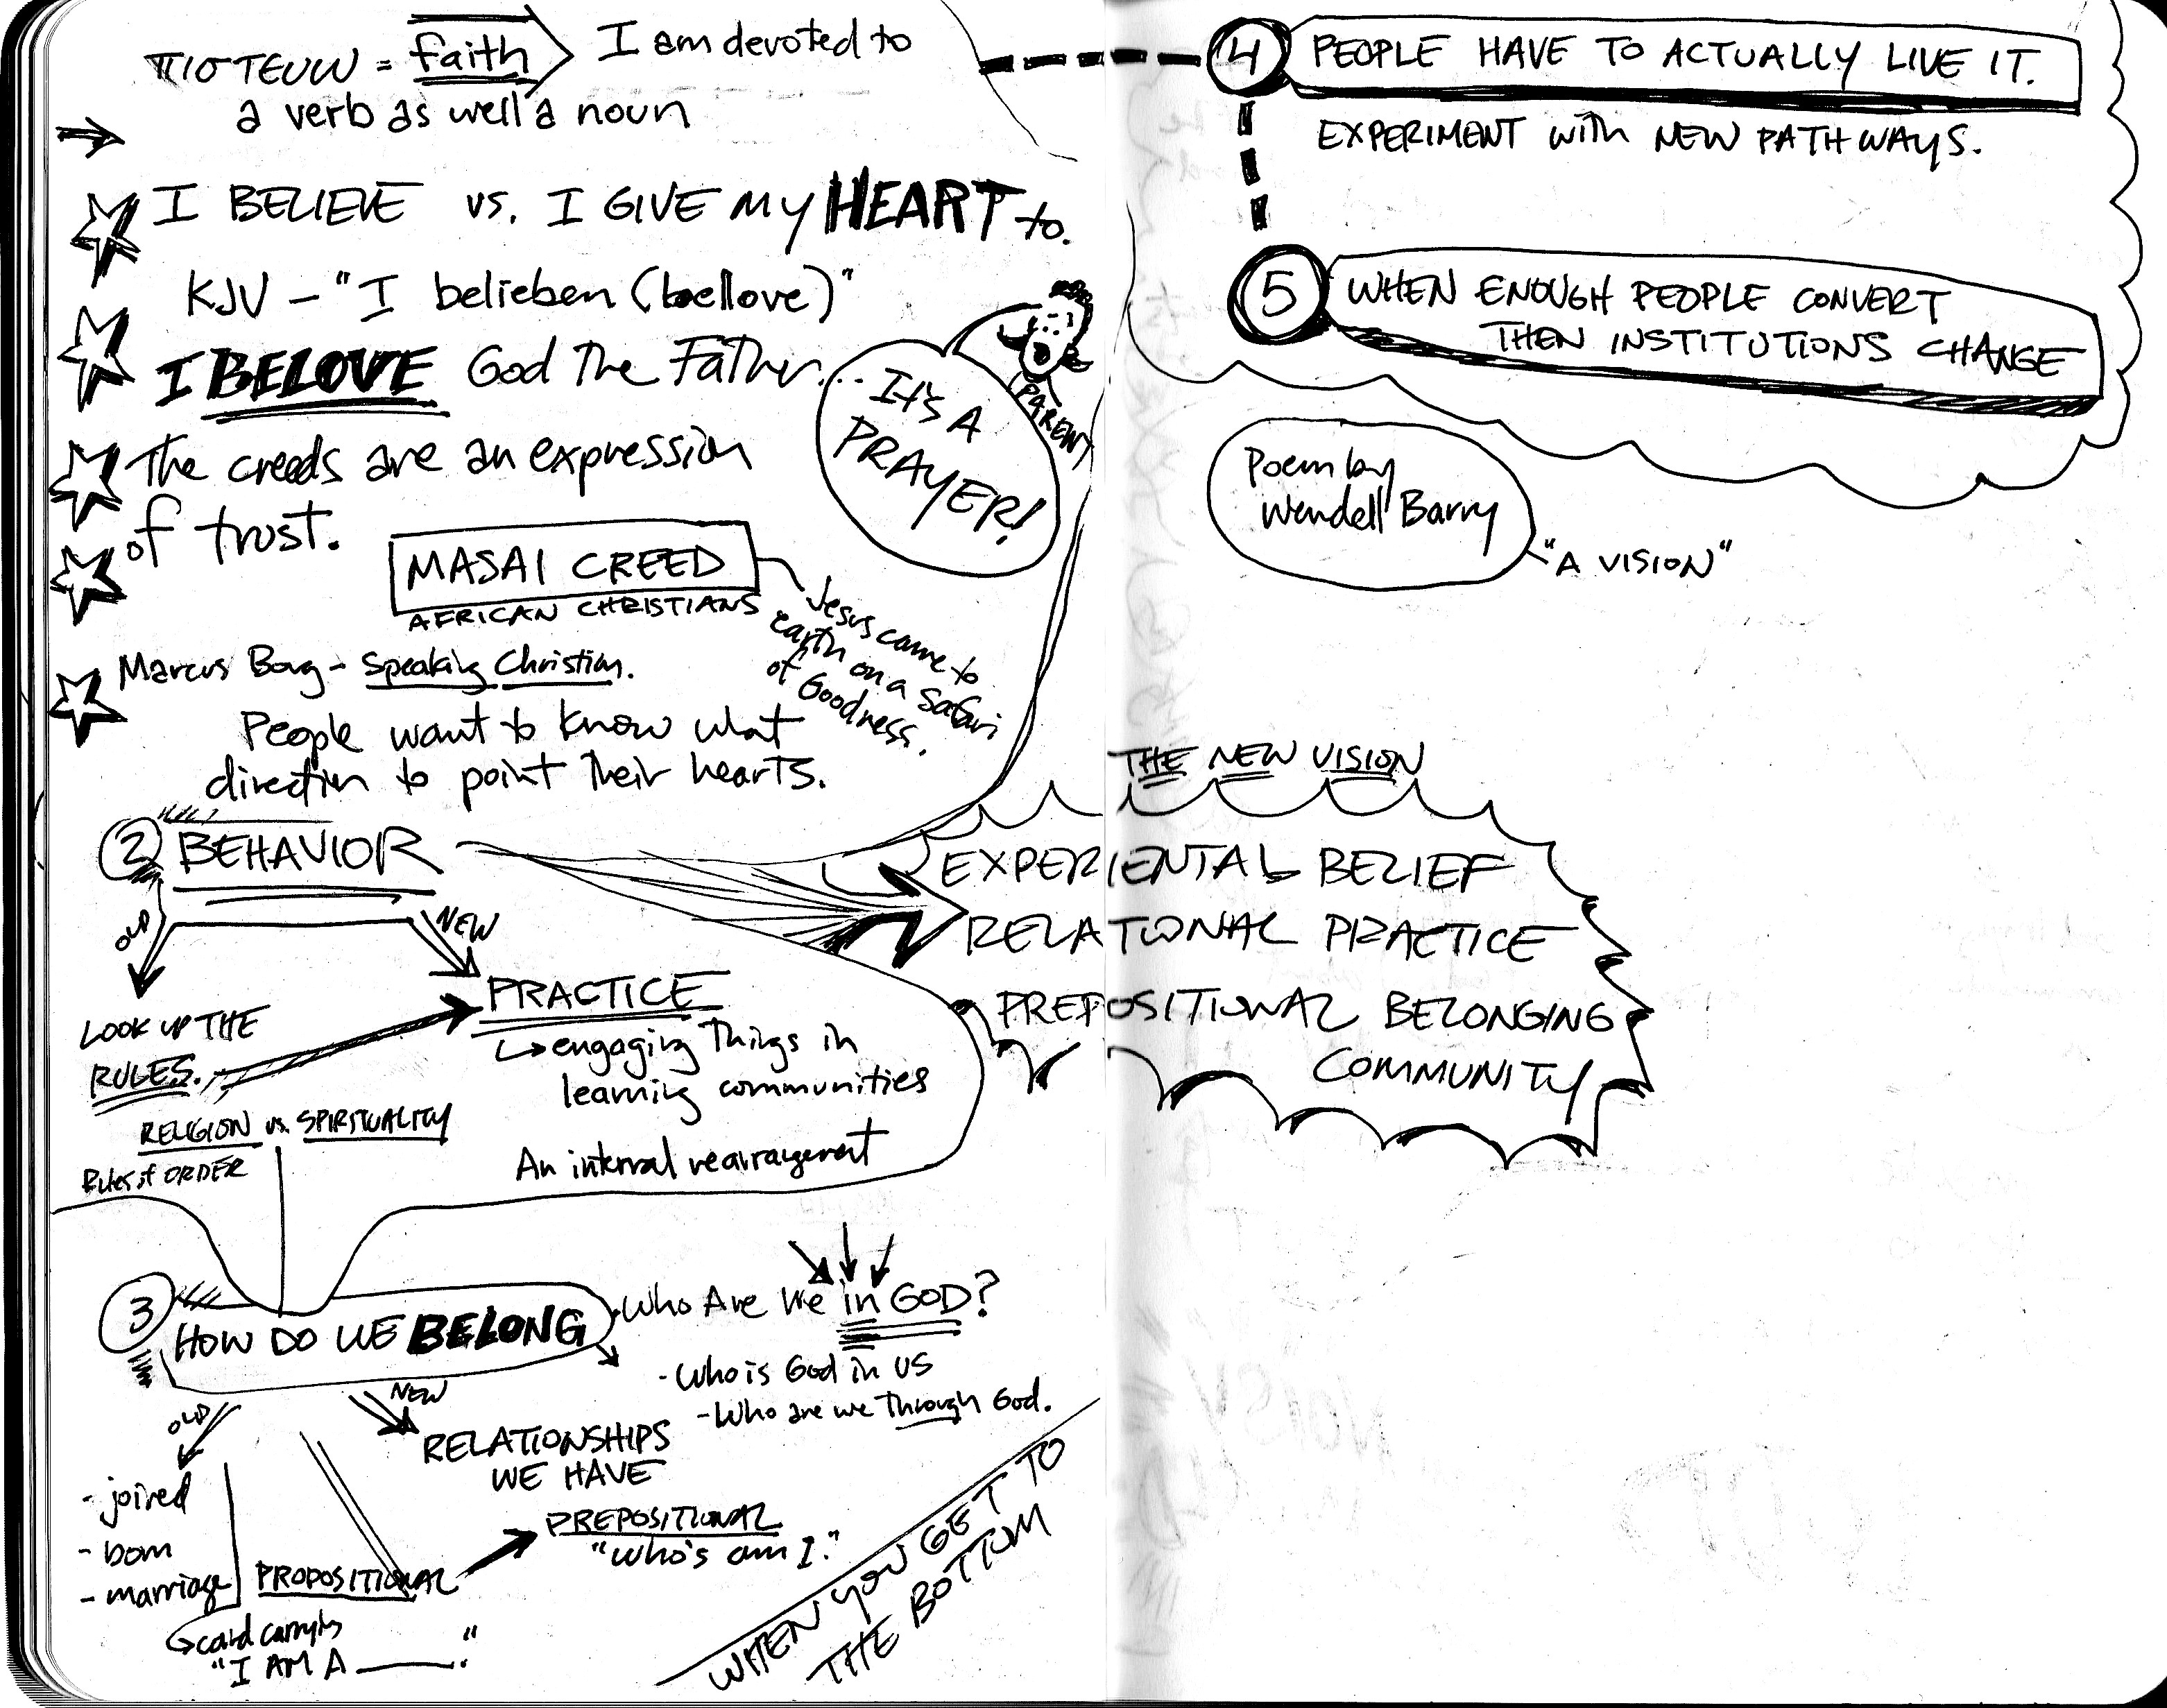 ΠΙΟΤΕUW = faith I am devoted to
a verb as well a noun
I BELIEVE vs. I GIVE MY HEART to.
KJV - "I belieben (bellove)"
I BELOVE God The Father...
IT'S A
PRAYER!
(PAREW)
The creeds are an expression
of trust.
MASAI CREED
AFRICAN CHRISTIANS
Jesus came to
earth on a Safari
of Goodness.
Marcus Borg - Speaking Christian.
People want to know what
direction to point Their hearts.
2 BEHAVIOR
OLD
NEW
LOOK UP THE
RULES.
PRACTICE
engaging Things in
learning communities
An internal rearrangement
RELIGION vs. SPIRITUALITY
Rules of ORDER
3 HOW DO WE BELONG
Who Are We in GOD?
- Who is God in us
- Who are we Through God.
OLD
NEW
- joined
- born
- marriage
RELATIONSHIPS
WE HAVE
PROPOSITIONAL
PREPOSITIONAL
"Who's am I."
card carrying
"I AM A ______."
WHEN YOU GET TO
THE BOTTOM
4 PEOPLE HAVE TO ACTUALLY LIVE IT.
EXPERIMENT with NEW PATHWAYS.
5 WHEN ENOUGH PEOPLE CONVERT
THEN INSTITUTIONS CHANGE
Poem by
Wendell Barry
"A VISION"
THE NEW VISION
EXPERIENTAL BELIEF
RELATIONAL PRACTICE
PREPOSITIONAL BELONGING
COMMUNITY